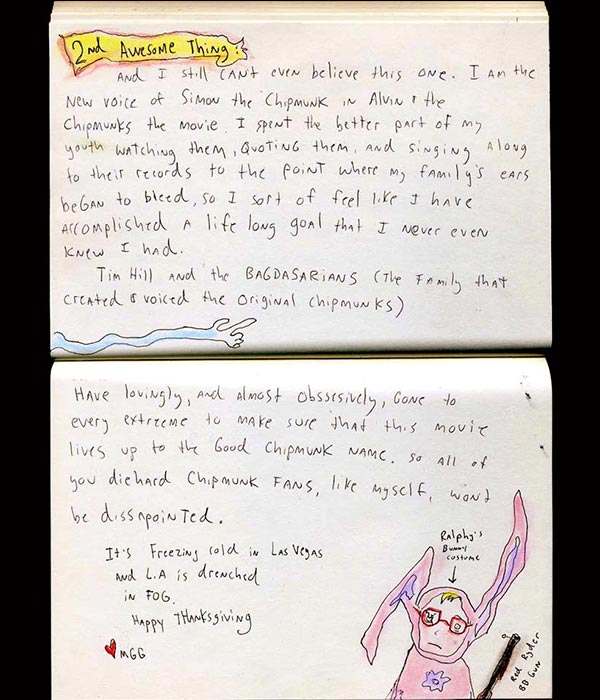 2nd Awesome Thing:
And I still can't even believe this one. I am the
new voice of Simon the Chipmunk in Alvin & the
Chipmunks the movie. I spent the better part of my
youth watching them, quoting them, and singing along
to their records to the point where my family's ears
began to bleed, so I sort of feel like I have
accomplished a life long goal that I never even
knew I had.
Tim Hill and the BAGDASARIANS (the family that
created & voiced the original chipmunks)
Have lovingly, and almost obsessively, gone to
every extreeme to make sure that this movie
lives up to the Good Chipmunk name. so all of
you diehard Chipmunk Fans, like myself, won't
be dissapointed.
It's Freezing cold in Las Vegas
and L.A is drenched
in FOG.
Happy Thanksgiving
MGG
Ralphy's
Bunny
costume
Red Ryder
BB Gun